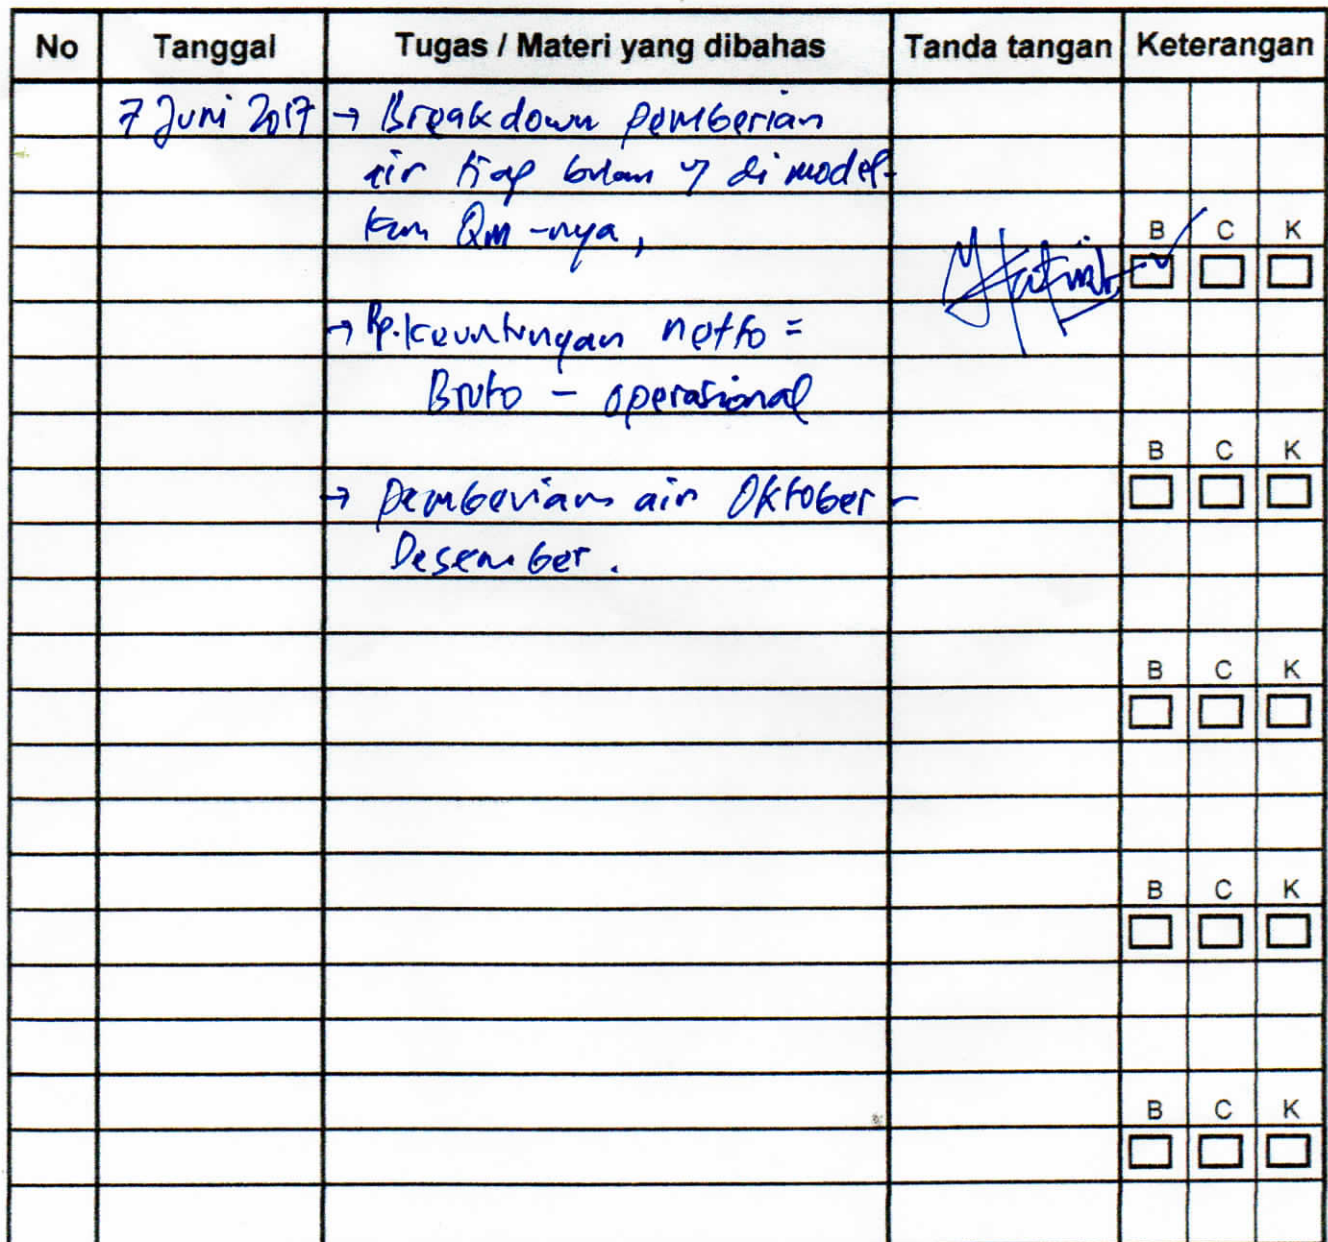 No Tanggal Tugas / Materi yang dibahas Tanda tangan Keterangan
7 Juni 2017 → Breakdown pemberian
air tiap bulan y di model-
kan QM -nya,
B C K
→ Rp. keuntungan netto =
Bruto - operasional
B C K
→ pemberian air Oktober -
Desember.
B C K
B C K
B C K